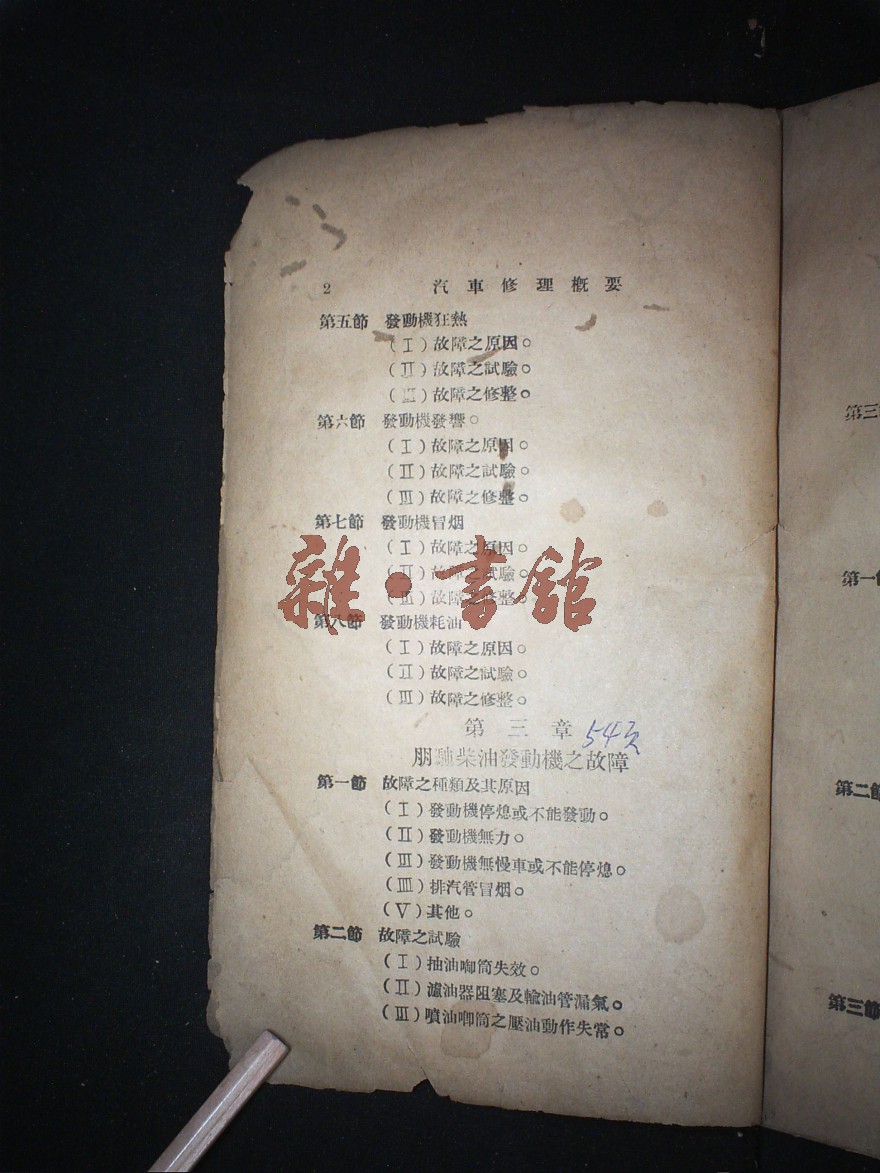 2 汽車修理概要
第五節 發動機狂熱
(I)故障之原因。
(II)故障之試驗。
(III)故障之修整。
第六節 發動機發響。
(I)故障之原因。
(II)故障之試驗。
(III)故障之修整。
第七節 發動機冒烟
(I)故障之原因。
(II)故障之試驗。
(III)故障之修整。
雜·書館
第八節 發動機耗油
(I)故障之原因。
(II)故障之試驗。
(III)故障之修整。
第三章 54页
朋馳柴油發動機之故障
第一節 故障之種類及其原因
(I)發動機停熄或不能發動。
(II)發動機無力。
(III)發動機無慢車或不能停熄。
(IIII)排汽管冒烟。
(V)其他。
第二節 故障之試驗
(I)抽油唧筒失效。
(II)濾油器阻塞及輸油管漏氣。
(III)噴油唧筒之壓油動作失常。
第三
第一節
第二節
第三節